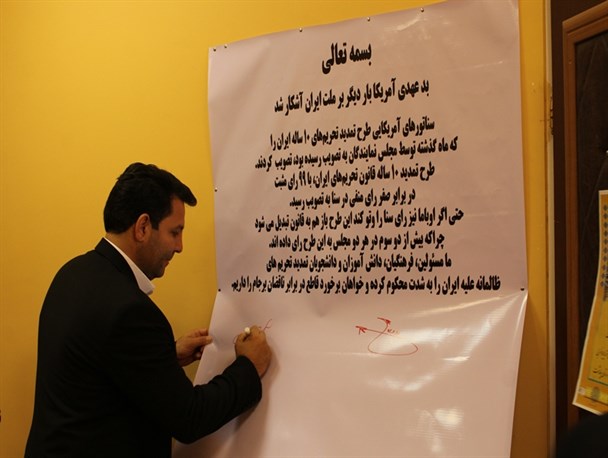 بسمه تعالی
بد عهدی آمریکا بار دیگر بر ملت ایران آشکار شد
سناتورهای آمریکایی طرح تمدید تحریم‌های ۱۰ ساله ایران را
که ماه گذشته توسط مجلس نمایندگان به تصویب رسیده بود، تصویب کردند.
طرح تمدید ۱۰ ساله قانون تحریم‌های ایران، با ۹۹ رای مثبت
در برابر صفر رای منفی در سنا به تصویب رسید.
حتی اگر اوباما نیز رای سنا را وتو کند این طرح باز هم به قانون تبدیل می شود
چراکه بیش از دو سوم در هر دو مجلس به این طرح رای داده اند.
ما مسئولین، فرهنگیان، دانش آموزان و دانشجویان تمدید تحریم های
ظالمانه علیه ایران را به شدت محکوم کرده و خواهان برخورد قاطع در برابر ناقضان برجام را داریم.